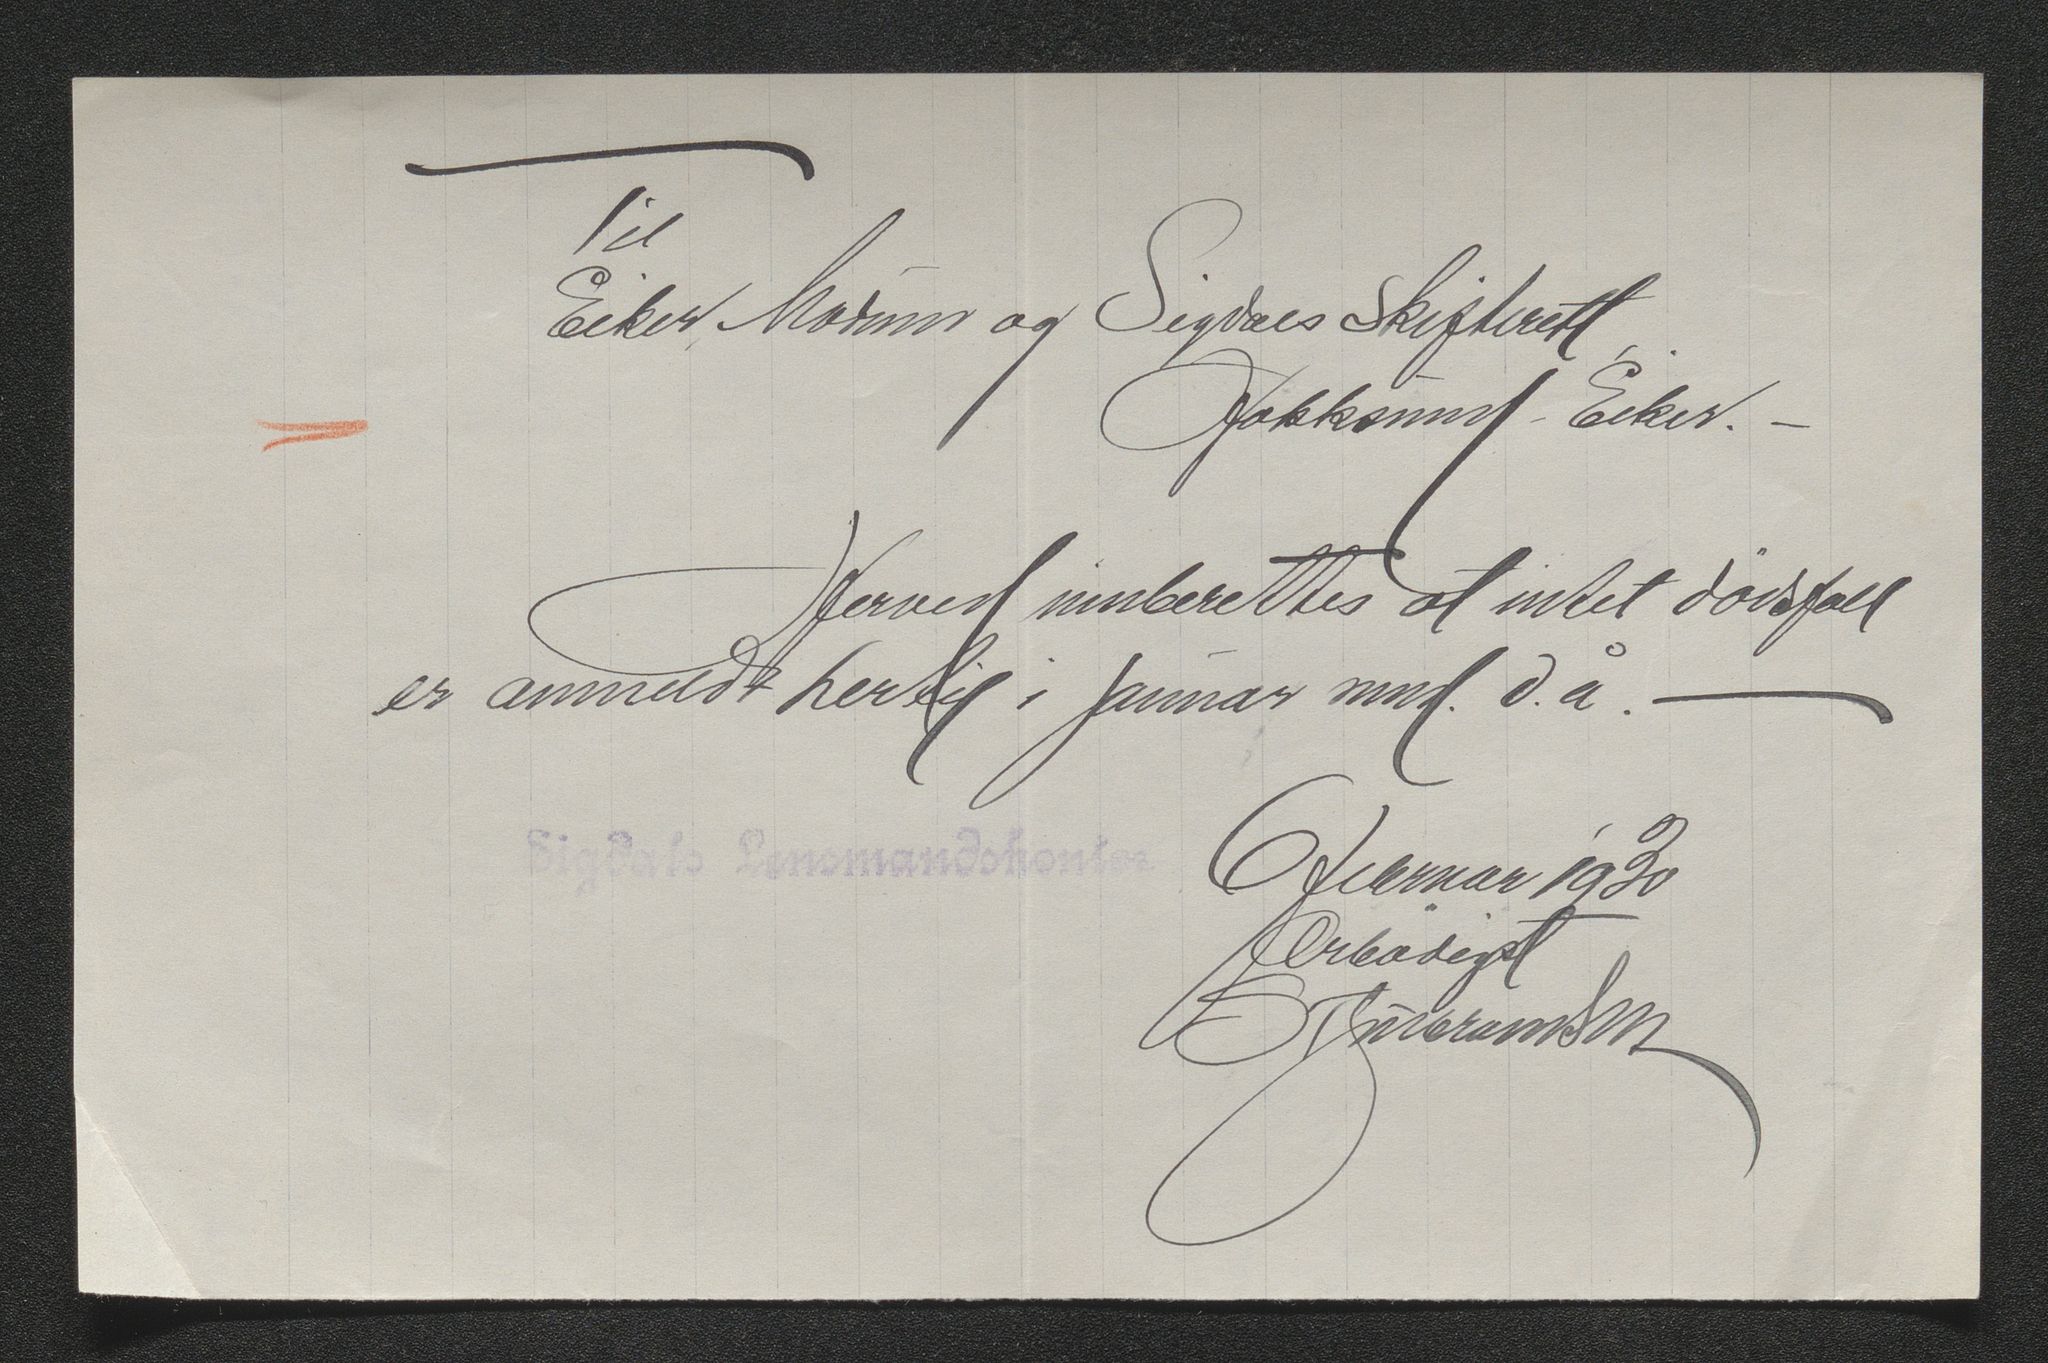 Til
Eiker, Modum og Sigdals Skifterett,
Hokksund - Eiker. -
Herved innberettes at intet dødsfall
er anmeldt hertil i januar mnd. d.å. -
Sigdals Lensmandskontor
6 februar 1930
Ærbødigst